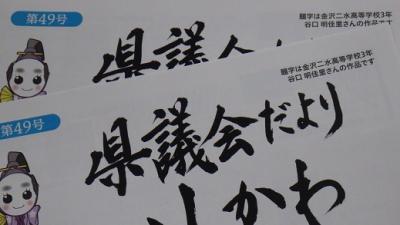 第49号
題字は金沢二水高等学校3年
谷口 明佳里さんの作品です
県議会
第49号
題字は金沢二水高等学校3年
谷口 明佳里さんの作品です
県議会だより
かわ